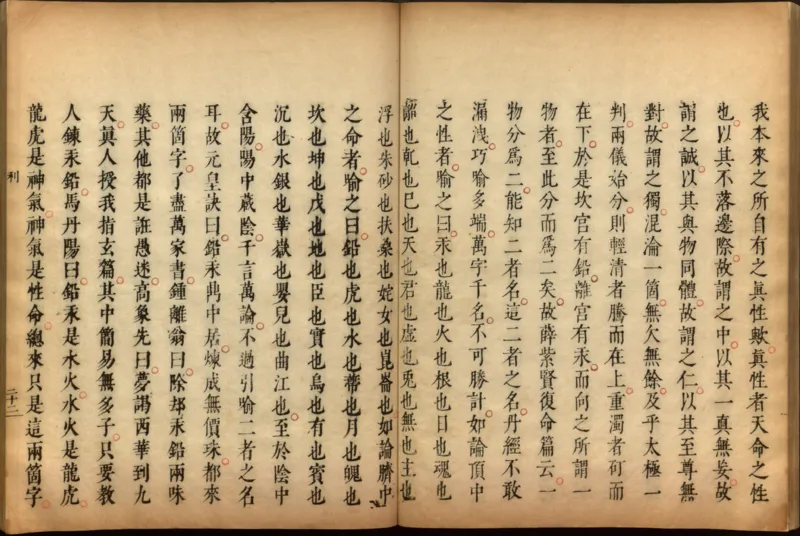 我本來之所自有之眞性歟眞性者天命之性
也以其不落邊際故謂之中以其一眞無妄故
謂之誠以其與物同體故謂之仁以其至尊無
對故謂之獨混淪一箇無欠無餘及乎太極一
判兩儀始分則輕清者騰而在上重濁者矴而
在下於是坎宮有鉛離宮有汞而向之所謂一
物者至此分而爲二矣故薛紫賢復命篇云一
物分爲二能知二者名這二者之名丹經不敢
漏洩巧喻多端萬字千名不可勝計如論頂中
之性者喻之曰汞也龍也火也根也日也魂也
離也乾也己也天也君也虛也兎也無也主也
浮也朱砂也扶桑也姹女也崑崙也如論臍中
之命者喻之曰鉛也虎也水也蒂也月也魄也
坎也坤也戊也地也臣也實也烏也有也賓也
沉也水銀也華嶽也嬰兒也曲江也至於陰中
含陽陽中藏陰千言萬論不過引喻二者之名
耳故元皇訣曰鉛汞鼎中居煉成無價珠都來
兩箇字了盡萬家書鍾離翁曰除却汞鉛兩味
藥其他都是誑愚迷高象先曰夢謁西華到九
天眞人授我指玄篇其中簡易無多子只要教
人鍊汞鉛馬丹陽曰鉛汞是水火水火是龍虎
龍虎是神氣神氣是性命總來只是這兩箇字
二十二